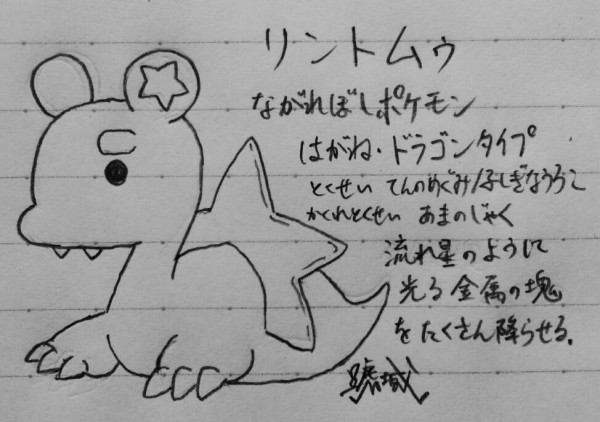 リントムゥ
ながれぼしポケモン
はがね・ドラゴンタイプ
とくせい てんのめぐみ/ふしぎなうろこ
かくれとくせい あまのじゃく
流れ星のように
光る金属の塊
をたくさん降らせる。